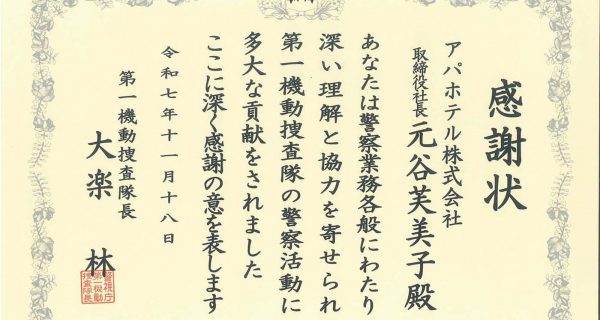 感謝状
アパホテル株式会社
取締役社長 元谷芙美子殿
あなたは警察業務各般にわたり
深い理解と協力を寄せられ
第一機動捜査隊の警察活動に
多大な貢献をされました
ここに深く感謝の意を表します
令和七年十一月十八日
第一機動捜査隊長
大楽 林
警視庁
第一機動
捜査隊長